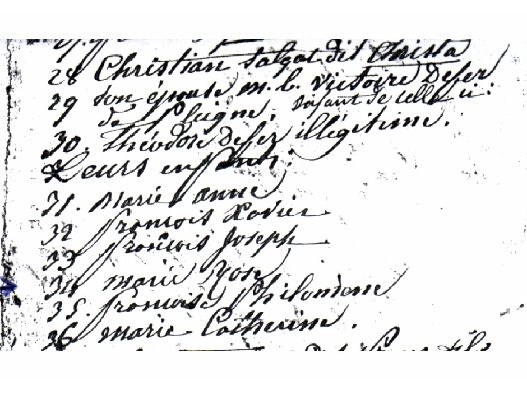 28 Christian Salzat dit Christa
29 Son épouse m. b. Victoire Defer
de St Leigne. Enfant de celle ci
30. Théodose Defer illégitime.
Leurs enfants.
31. Marie Anne
32 françois Xavier
33 françois Joseph
34 marie
35. françoise Philomene
36 marie Catherine.